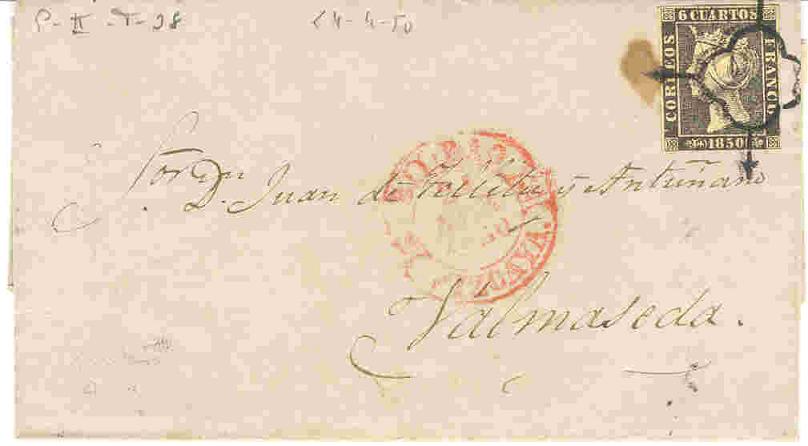 P-II-T-28 24-4-50
6 CUARTOS
CORREOS
FRANCO
1850
D. Juan de y Antuñano
BILBAO
VIZCAYA.
Valmaseda.